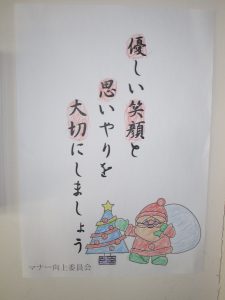 優しい笑顔と
思いやりを
大切にしましょう
マナー向上委員会